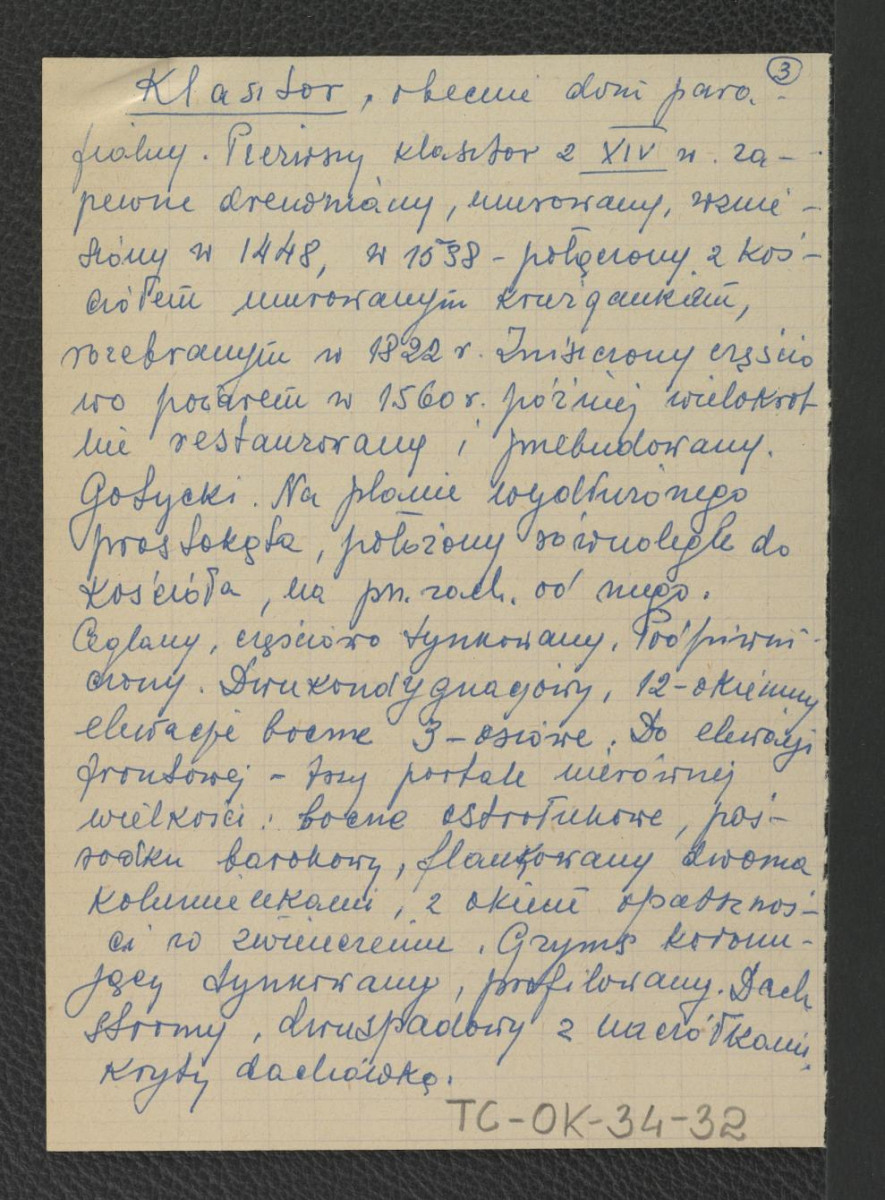 3
Klasztor, obecnie dom para-
fialny. Pierwszy klasztor z XIV w. za-
pewne drewniany, murowany, wznie-
siony w 1448, w 1538 - połączony z koś-
ciołem murowanym krużgankiem,
rozebranym w 1822 r. Zniszczony częścio
wo pożarem w 1560 r. później wielokrot
nie restaurowany i przebudowany.
Gotycki. Na planie wydłużonego
prostokąta, położony równolegle do
kościoła, na pn. zach. od niego.
Ceglany, częściowo tynkowany. Podpiwni-
czony. Dwukondygnacjowy, 12-okienny
elewacje boczne 3-osiowe. Do elewacji
frontowej - trzy portale nierównej
wielkości: boczne ostrołukowe, poś-
rodku barokowy, flankowany dwoma
kolumienkami, z okiem opatrznoś-
ci w zwieńczeniu. Gzyms koronu-
jący tynkowany, profilowany. Dach
stromy, dwuspadowy z naczółkami,
kryty dachówką.
TC-OK-34-32